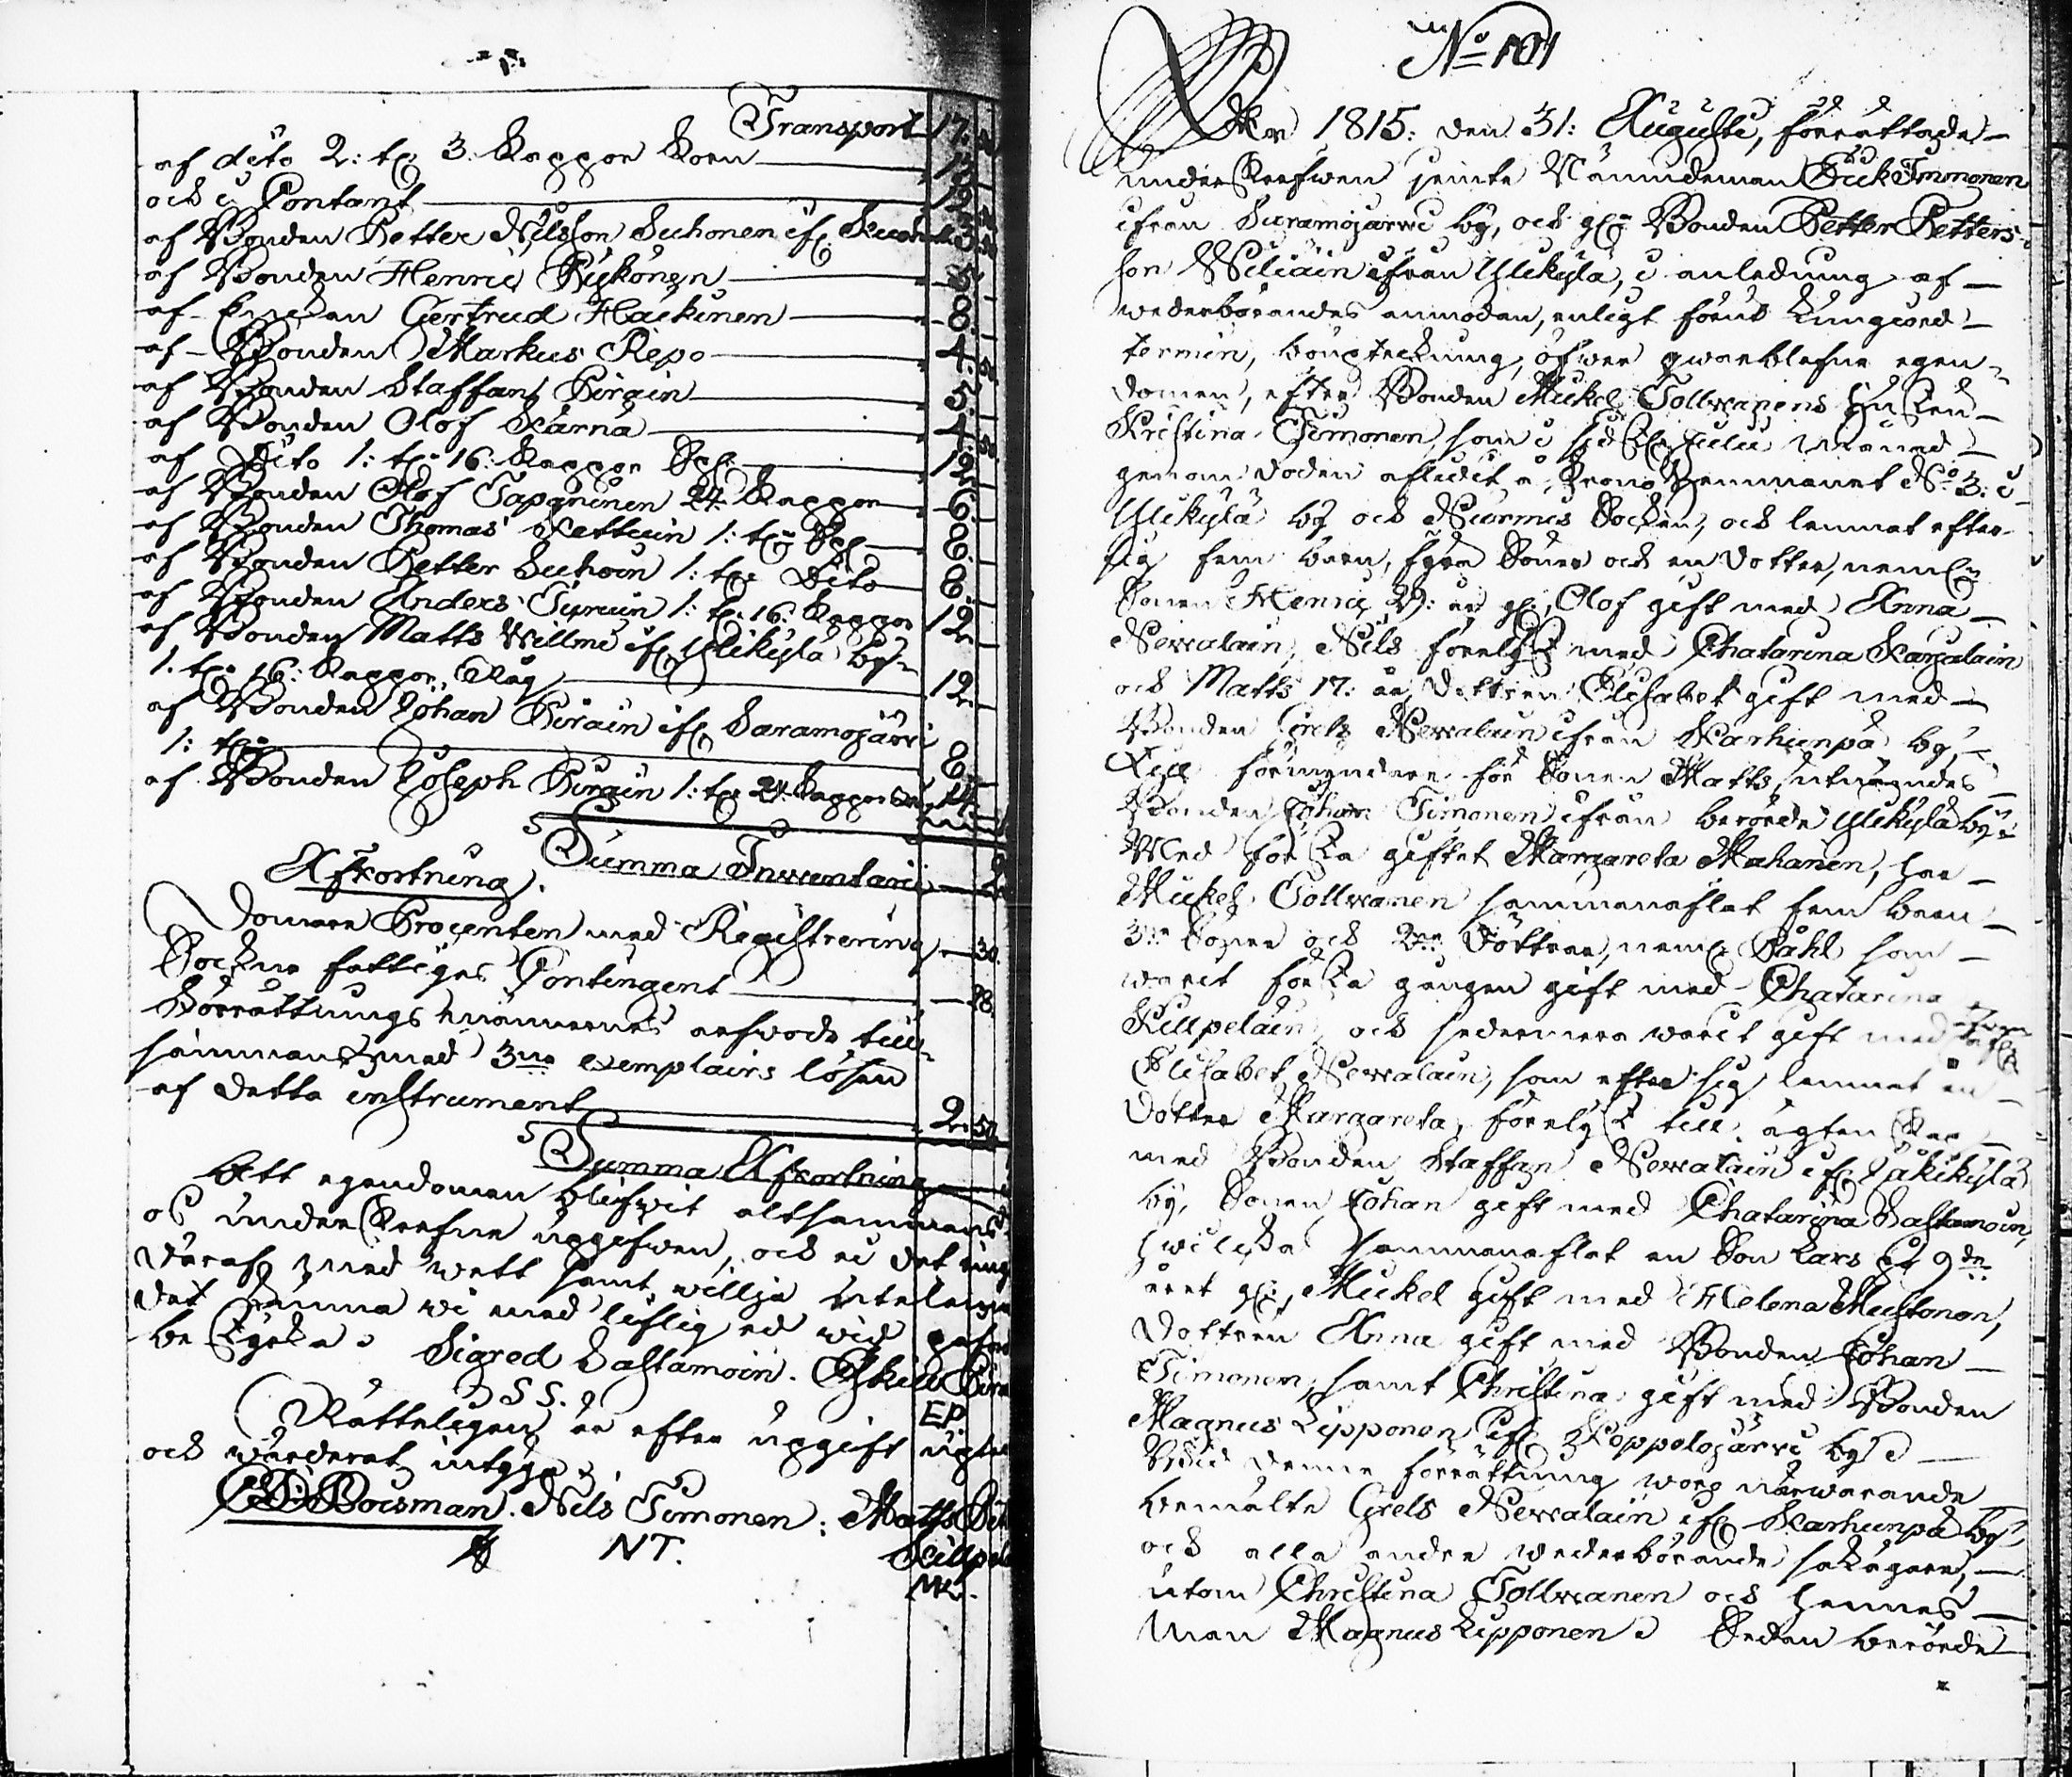 Transport 17.
af dito 2: tr: 3: Kappor Korn 13.
och i Contant 12.
af Bonden Petter Nilsson Suhonen if: 3.
af Bonden Henric Rÿkönen 5.
af Enkan Gertrud Häikinen 8.
af Bonden Markus Repo 4.
af Bonden Staffan Piräin 5.
af Bonden Olof Kärnä 4.
af Dito 1: tr: 16: Kappor 12.
af Bonden Olof Tapaninen 24: Kappor 6.
af Bonden Thomas Kettuin 1: tr: 8.
af Bonden Petter Suhoin 1: tr: Dito 8.
af Bonden Anders Turuin 1: tr: 16: Kappor 12.
af Bonden Matts Willmi if: Ylikylä by
1: tr: 16: Kappor Råg 12.
af Bonden Johan Piräin if: Saramojärvi
1: tr: 8.
af Bonden Joseph Piräin 1: tr: 24: Kappor 14.
Summa Inventarii
Afkortning.
Domare Procenten med Registrering 30.
Sockne fattiges Contingent 28.
Förrättningsmännernes arfwode till-
sammans med 3ne exemplairs lösen
af detta instrument 2. 50.
Summa Afkortning
Att egendomen blifwit altsammans
os underskrefne uppgifwen, och ei det ring
däraf med wett samt willja utelemn
det kunna wi med liflig ed wid
bestyrka. Sigred Sastamoin. Eskill Pirä
SS. EP.
Rätteligen är efter upgift
och wärderat, intyga
Boisman. Nils Timonen: Matts
NT. Killpel
MK.
No 101
År 1815: den 31: Augusti, förrättade
underskrefwen jemte Nämndeman Erik Immonen
ifrån Saramojärvi by, och Bonden Petter Petters-
son Weliäin ifrån Ylikylä, i anledning af
wederbörandes anmodan, enligt förut kungiord
termin, bouptekning, öfwer qwarblefne egen-
domen, efter Bonden Mickel Tollwanens Enka
Kristina Timonen, som i Julii månad
genom döden aflidit å Krono Hemmanet No 3: i
Ylikylä by och Nurmis Socken, och lemnat efter
sig fem barn, fyra Söner och en dotter, neml:
Sonen Henric 29: år gl:, Olof gift med Anna
Newalain, Nils förelyst med Chatarina Karjalain
och Matts 17: år, Dottren Elisabet gift med
Bonden Grels Newalain ifrån Karhunpä by,
till förmyndare för Sonen Matts, utnämndes
Bonden Johan Timonen ifrån berörde Ylikylä by.
Med förra giftet Margareta Mahanen, har
Mickel Tollwanen sammanaflat fem barn
3ne Söner och 2ne Döttrar, neml: Påhl som
warit första gången gift med Chatarina
Killpeläin, och sedermera warit gift med
Elisabet Newalain, som efter sig lemnat en
dotter Margareta, förelyst till ägtenskap
med Bonden Staffan Newalain if: Jokikylä
by, Sonen Johan gift med Chatarina Sastamoin,
hwilka sammanaflat en Son Lars på 9de
året gl:, Mickel gift med Helena Mustonen,
dottren Anna gift med Bonden Johan
Timonen, samt Christina gift med Bonden
Magnus Lipponen if: Koppolojärvi by.
Wid denne förrättning woro närwarande
bemälte Grels Newalain if: Karhunpä by,
och alla andre wederbörande sakägare,
utom Christina Tollwanen och hennes
Man Magnus Lipponen. Sedan berörde